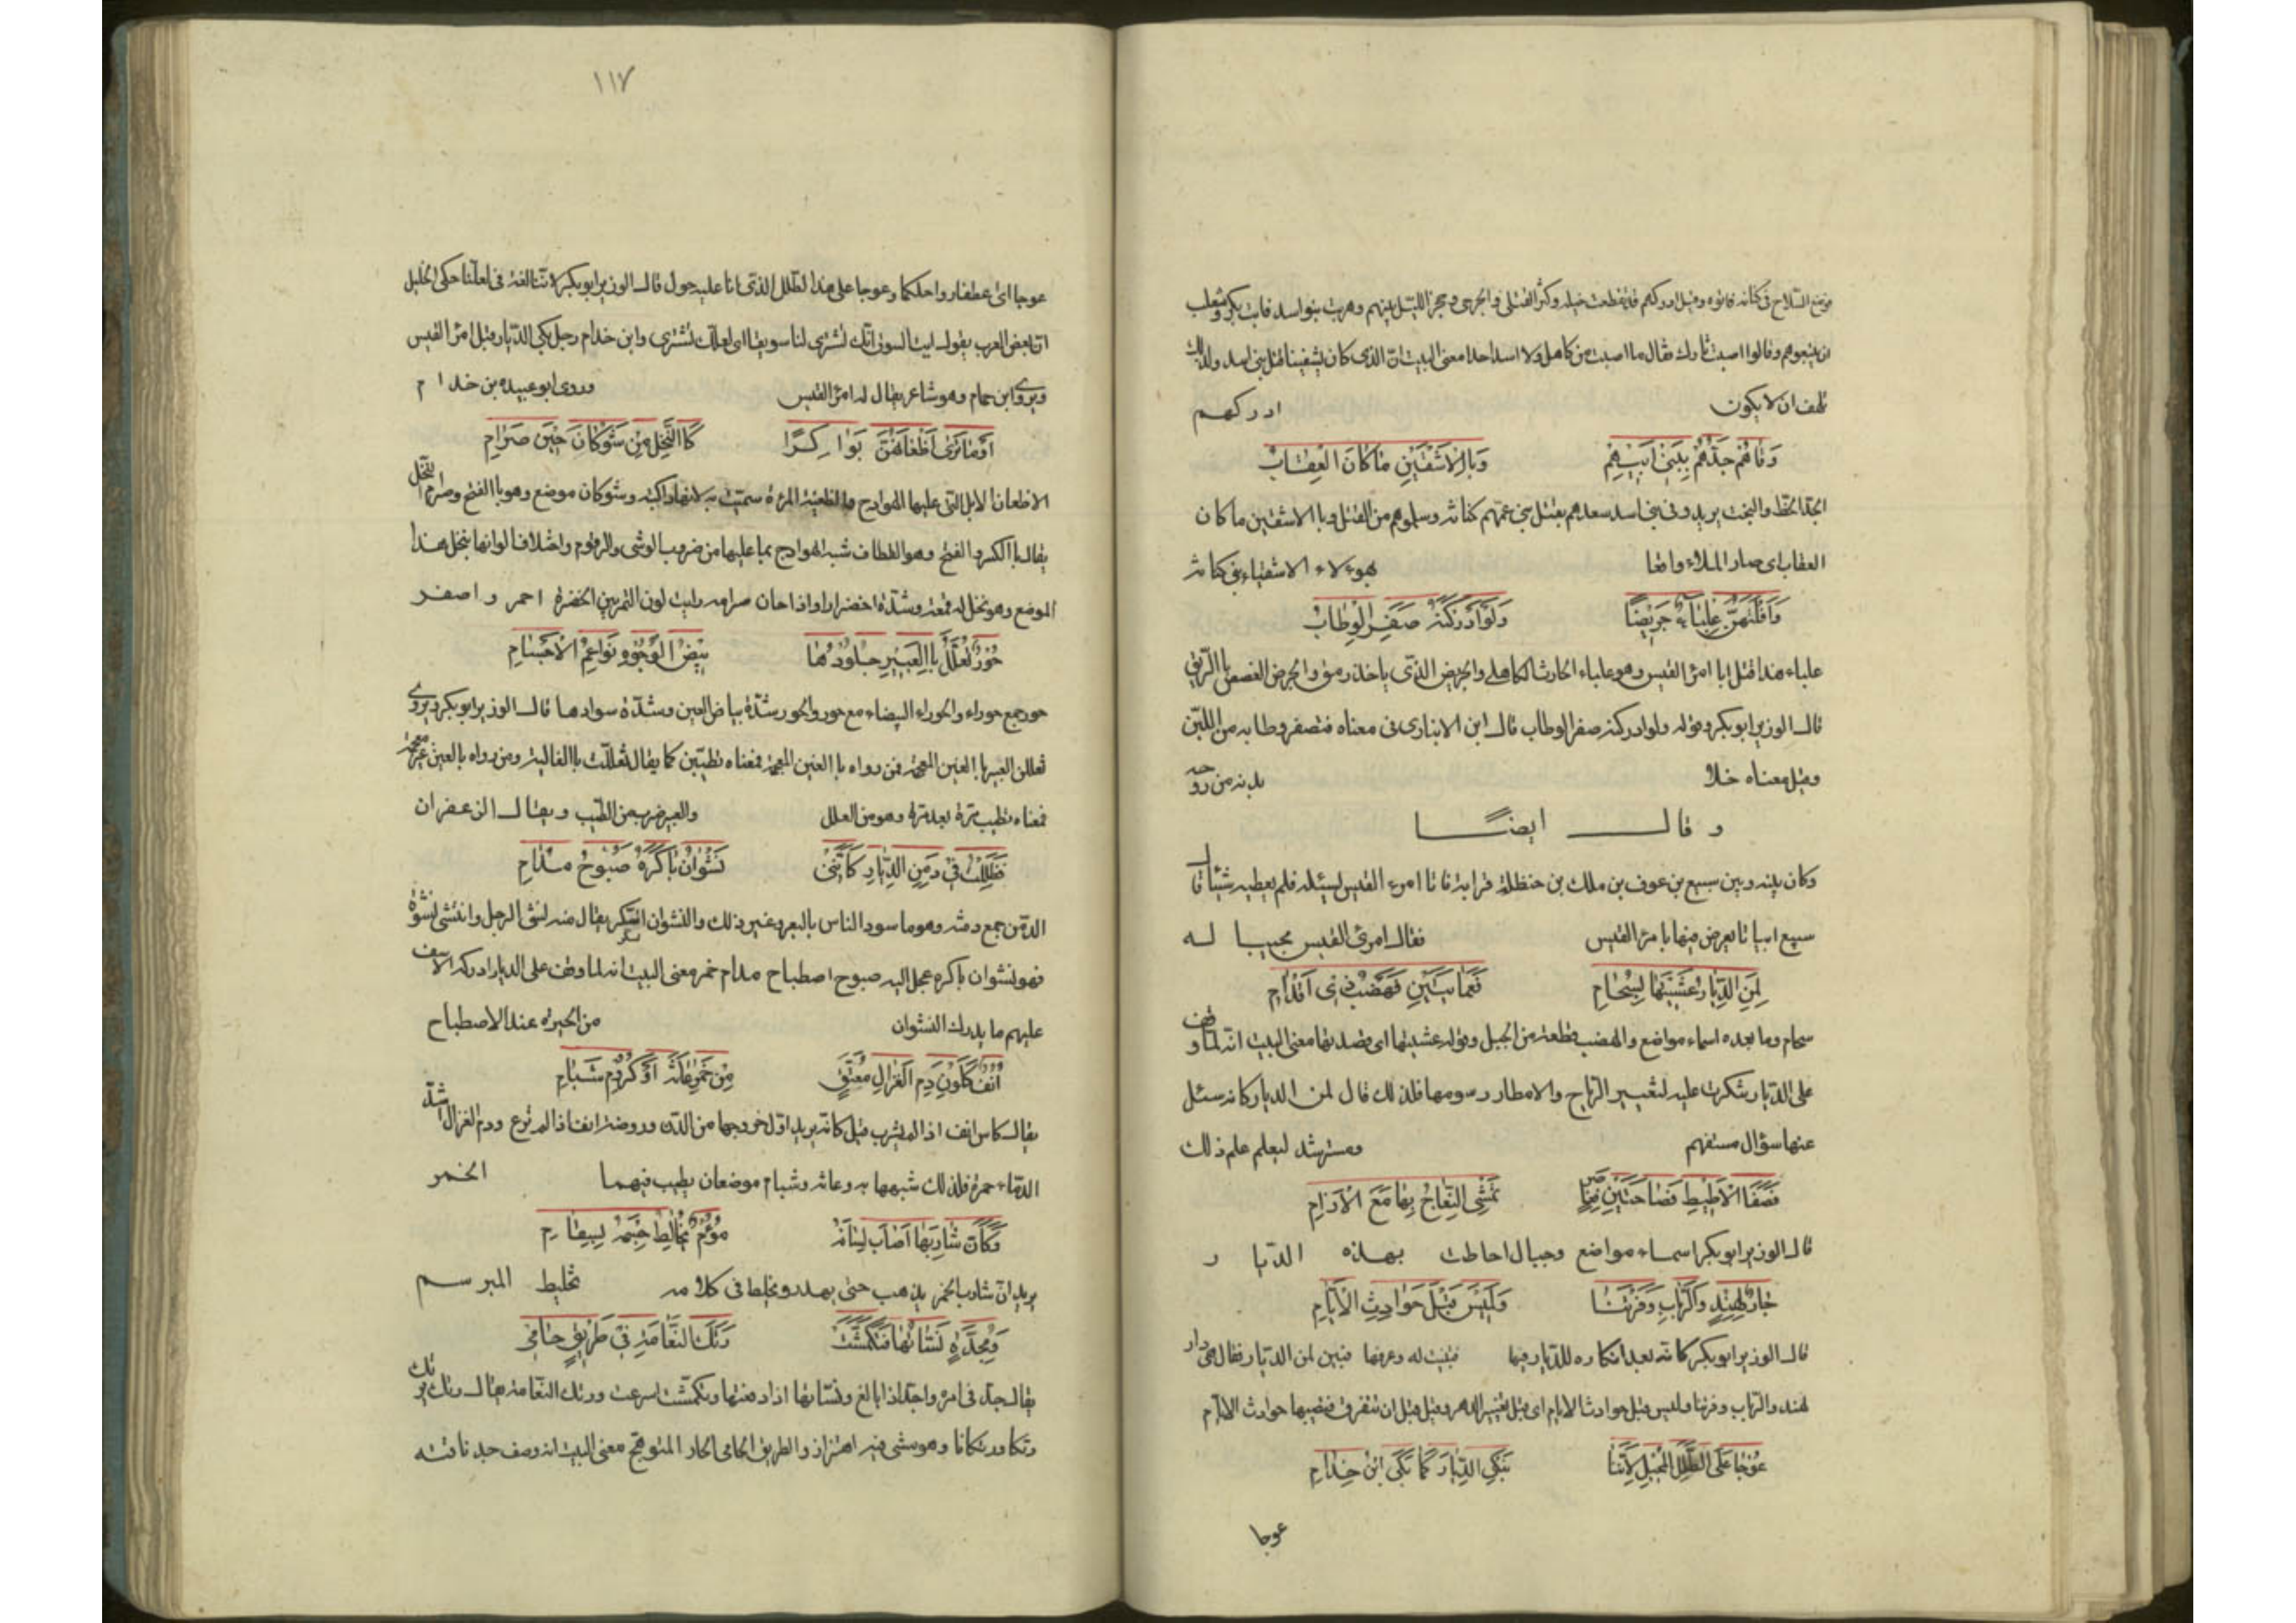 فوضع السلاح في كنانه فاتوه وقيل ادركهم قد تقطعت خيله وكثر القتلى والجرحى وحجز الليل بينهم وهربت بنو اسد فابت بكر وتغلب
ان يتبعوهم وقالوا اصبت ثارك فقال ما اصبت من كاهل ولا اسد احدا معنى البيت ان الذي كان يشفينا قتل بني اسد ولذلك
تلهف ان لا يكون ادركهم
وَقَاهُم جَدُّهُم بِبَنِي اَبِيهِم وَبِالاَشْقَيْنِ مَا كَانَ العِقَابُ
الجد الحظ والبخت يريد وقى بني اسد سعدهم بقتل بني عمهم كنانة وسلموهم من القتل وبالاشقين ما كان
العقاب اي صار البلاء واقعا بهؤلاء الاشقياء بني كنانة
وَاَفْلَتَهُنَّ عِلْبَاءٌ جَرِيضًا وَلَوْ اَدْرَكْنَهُ صَفِرَ الوِطَابُ
علباء هذا قتل ابا امرئ القيس وهو علباء الحارث الكاهلي والجريض الذي ياخذ رمق والجرض الغصص بالريق
قالـ الوزير ابو بكر وقوله ولو ادركنه صفر الوطاب قالـ ابن الانباري في معناه فتصفر وطابه من اللبن
وقيل معناه خلا بدنه من روحه
وقالـ ايضًا
وكان بينه وبين سبيع بن عوف بن ملك بن حنظلة قرابة فاتا امرء القيس ليسئله فلم يعطيه شيئا قال
سبيع ابياتا يعرض فيها بامرئ القيس فقالـ امرئ القيس مجيبا له
لِمَنِ الدِّيَارُ غَشِيتُهَا بِسُحَامِ فَعَمَايَتَيْنِ فَهَضْبُ ذِي اَقْدَامِ
سحام وما بعده اسماء مواضع والهضب قطعة من الجبل وقوله غشيتها اي قصدتها معنى البيت انه لما وقف
على الديار تنكرت عليه لتغيير الرياح والامطار رسومها فلذلك قال لمن الديار كانه سئل
عنها سؤال مستفهم ومسترشد ليعلم علم ذلك
فَصَفَا الاَطِيطِ فَصَاحَتَيْنِ تَمْشِي النِّعَاجُ بِهَا مَعَ الاَرَامِ
قالـ الوزير ابو بكر اسماء مواضع وجبال احاطت بهذه الديار
دَارٌ لِهِنْدٍ وَالرَّبَابِ وَفَرْتَنَا وَلَمِيسَ قَبْلَ حَوَادِثِ الاَيَّامِ
قالـ الوزير ابو بكر كانه بعد انكاره للديار فيها تبينت له وعرفها فبين لمن الديار فقال هي دار
لهند والرباب وفرتنا ولميس قبل حوادث الايام اي قبل تغيير الدهر وقيل قبل ان تتفرق فتصيبها حوادث الايام
عُوجَا عَلَى الطَّلَلِ المُحِيلِ لِاَنَّنَا نَبْكِي الدِّيَارَ كَمَا بَكَى ابْنُ خِذَامِ
عوجا
١١٧
عوجا اي اعطفا رواحلكما وعوجا على هذا الطلل الذي اتا عليه حول قالـ الوزير ابو بكر لاننا لغة في لعلنا حكى الخليل
ان بعض العرب يقولـ ايت السوق انك تشتري لنا سويقا اي لعلك تشتري وابن خذام رجل بكى الديار قبل امرئ القيس
ويروى ابن حمام وهو شاعر يقال له امرئ القيس وروى ابو عبيده بن خذام
اَوَمَا تَرَى اَظْعَانَهُنَّ بَوَاكِرًا كَالنَّخْلِ مِنْ شَوْكَانَ حِينَ صِرَامِ
الاظعان الابل التي عليها الهوادج والظعينة المرءة سميت به لانها راكبة وشوكان موضع وهو بالفتح وصرام النخل
يقالـ بالكسر والفتح وهو القطاف شبه الهوادج بما عليها من ضروب الوشي والرقوم واختلاف الوانها بنخل هذا
الموضع وهو نخل له متعة وشدة اخضرار واذا حان صرامه رايت لون الثمر بين الخضرة احمر واصفر
حُورٌ تُعَلَّلُ بِالعَبِيرِ جُلُودُهَا بِيضُ الوُجُوهِ نَوَاعِمُ الاَجْسَامِ
حور جمع حوراء والحوراء البيضاء مع حور والحور شدة بياض العين وشدة سوادها قالـ الوزير ابو بكر ويروى
تعللن العبير بالغين المعجمة فمن رواه بالغين المعجمة فمعناه تطيبن كما يقال تغللت بالغالية ومن رواه بالعين غير معجمة
فمعناه تطيب مرة بعد مرة وهو من العلل والعبير ضرب من الطيب ويقالـ الزعفران
فَظَلِلْتُ فِي دِمَنِ الدِّيَارِ كَاَنَّنِي نَشْوَانُ بَاكَرَهُ صَبُوحُ مُدَامِ
الدمن جمع دمنة وهو ما سود الناس بالبعر وغير ذلك والنشوان السكر يقال منه نشي الرجل وانتشى نشوة
فهو نشوان باكره عجل اليه صبوح اصطباح مدام خمر معنى البيت انه لما وقف على الديار ادركه الاسف
عليهم ما يدرك النشوان من الحيرة عند الاصطباح
اُنُفٌ كَلَوْنِ دَمِ الغَزَالِ مُعَتَّقٍ مِنْ خَمْرِ عَانَةَ اَوْ كُرُومِ شَبَامِ
يقالـ كاس انف اذا لم يشرب قبل كانه يريد اول خروجها من الدن وروضة انف اذا لم ترع ودم الغزال اشد
الدماء حمرة فلذلك شبهها به وعانة وشبام موضعان يطيب فيهما الخمر
وَكَاَنَّ شَارِبَهَا اَصَابَ لِسَانَهُ مُومٌ يُخَالِطُ جِسْمَهُ بِسِقَامِ
يريد ان شارب الخمر يذهب حتى يهذر ويخلط في كلامه تخليط المبرسم
وَمُجِدَّةٍ نَسَّاْتُهَا فَتَكَمَّشَتْ رَتَكَ النَّعَامَةِ فِي طَرِيقٍ حَامِي
يقالـ جد في امره واجد اذا بالغ ونسّاتها اذا دفعتها وتكمشت اسرعت ورتك النعامة يقالـ رتك يرتك
رتكا ورتكانا وهو مشي فيه اهتزاز والطريق الحامي الحار المتوهج معنى البيت انه وصف جد ناقته